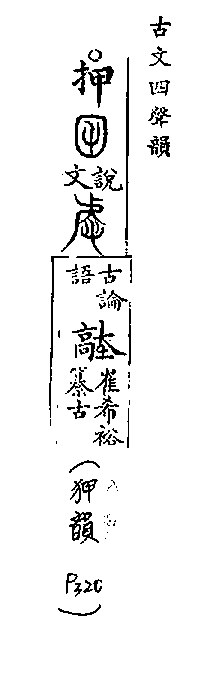 古文四聲韻
押
說
文
古論
語
崔希裕
纂古
(狎韻 P320)